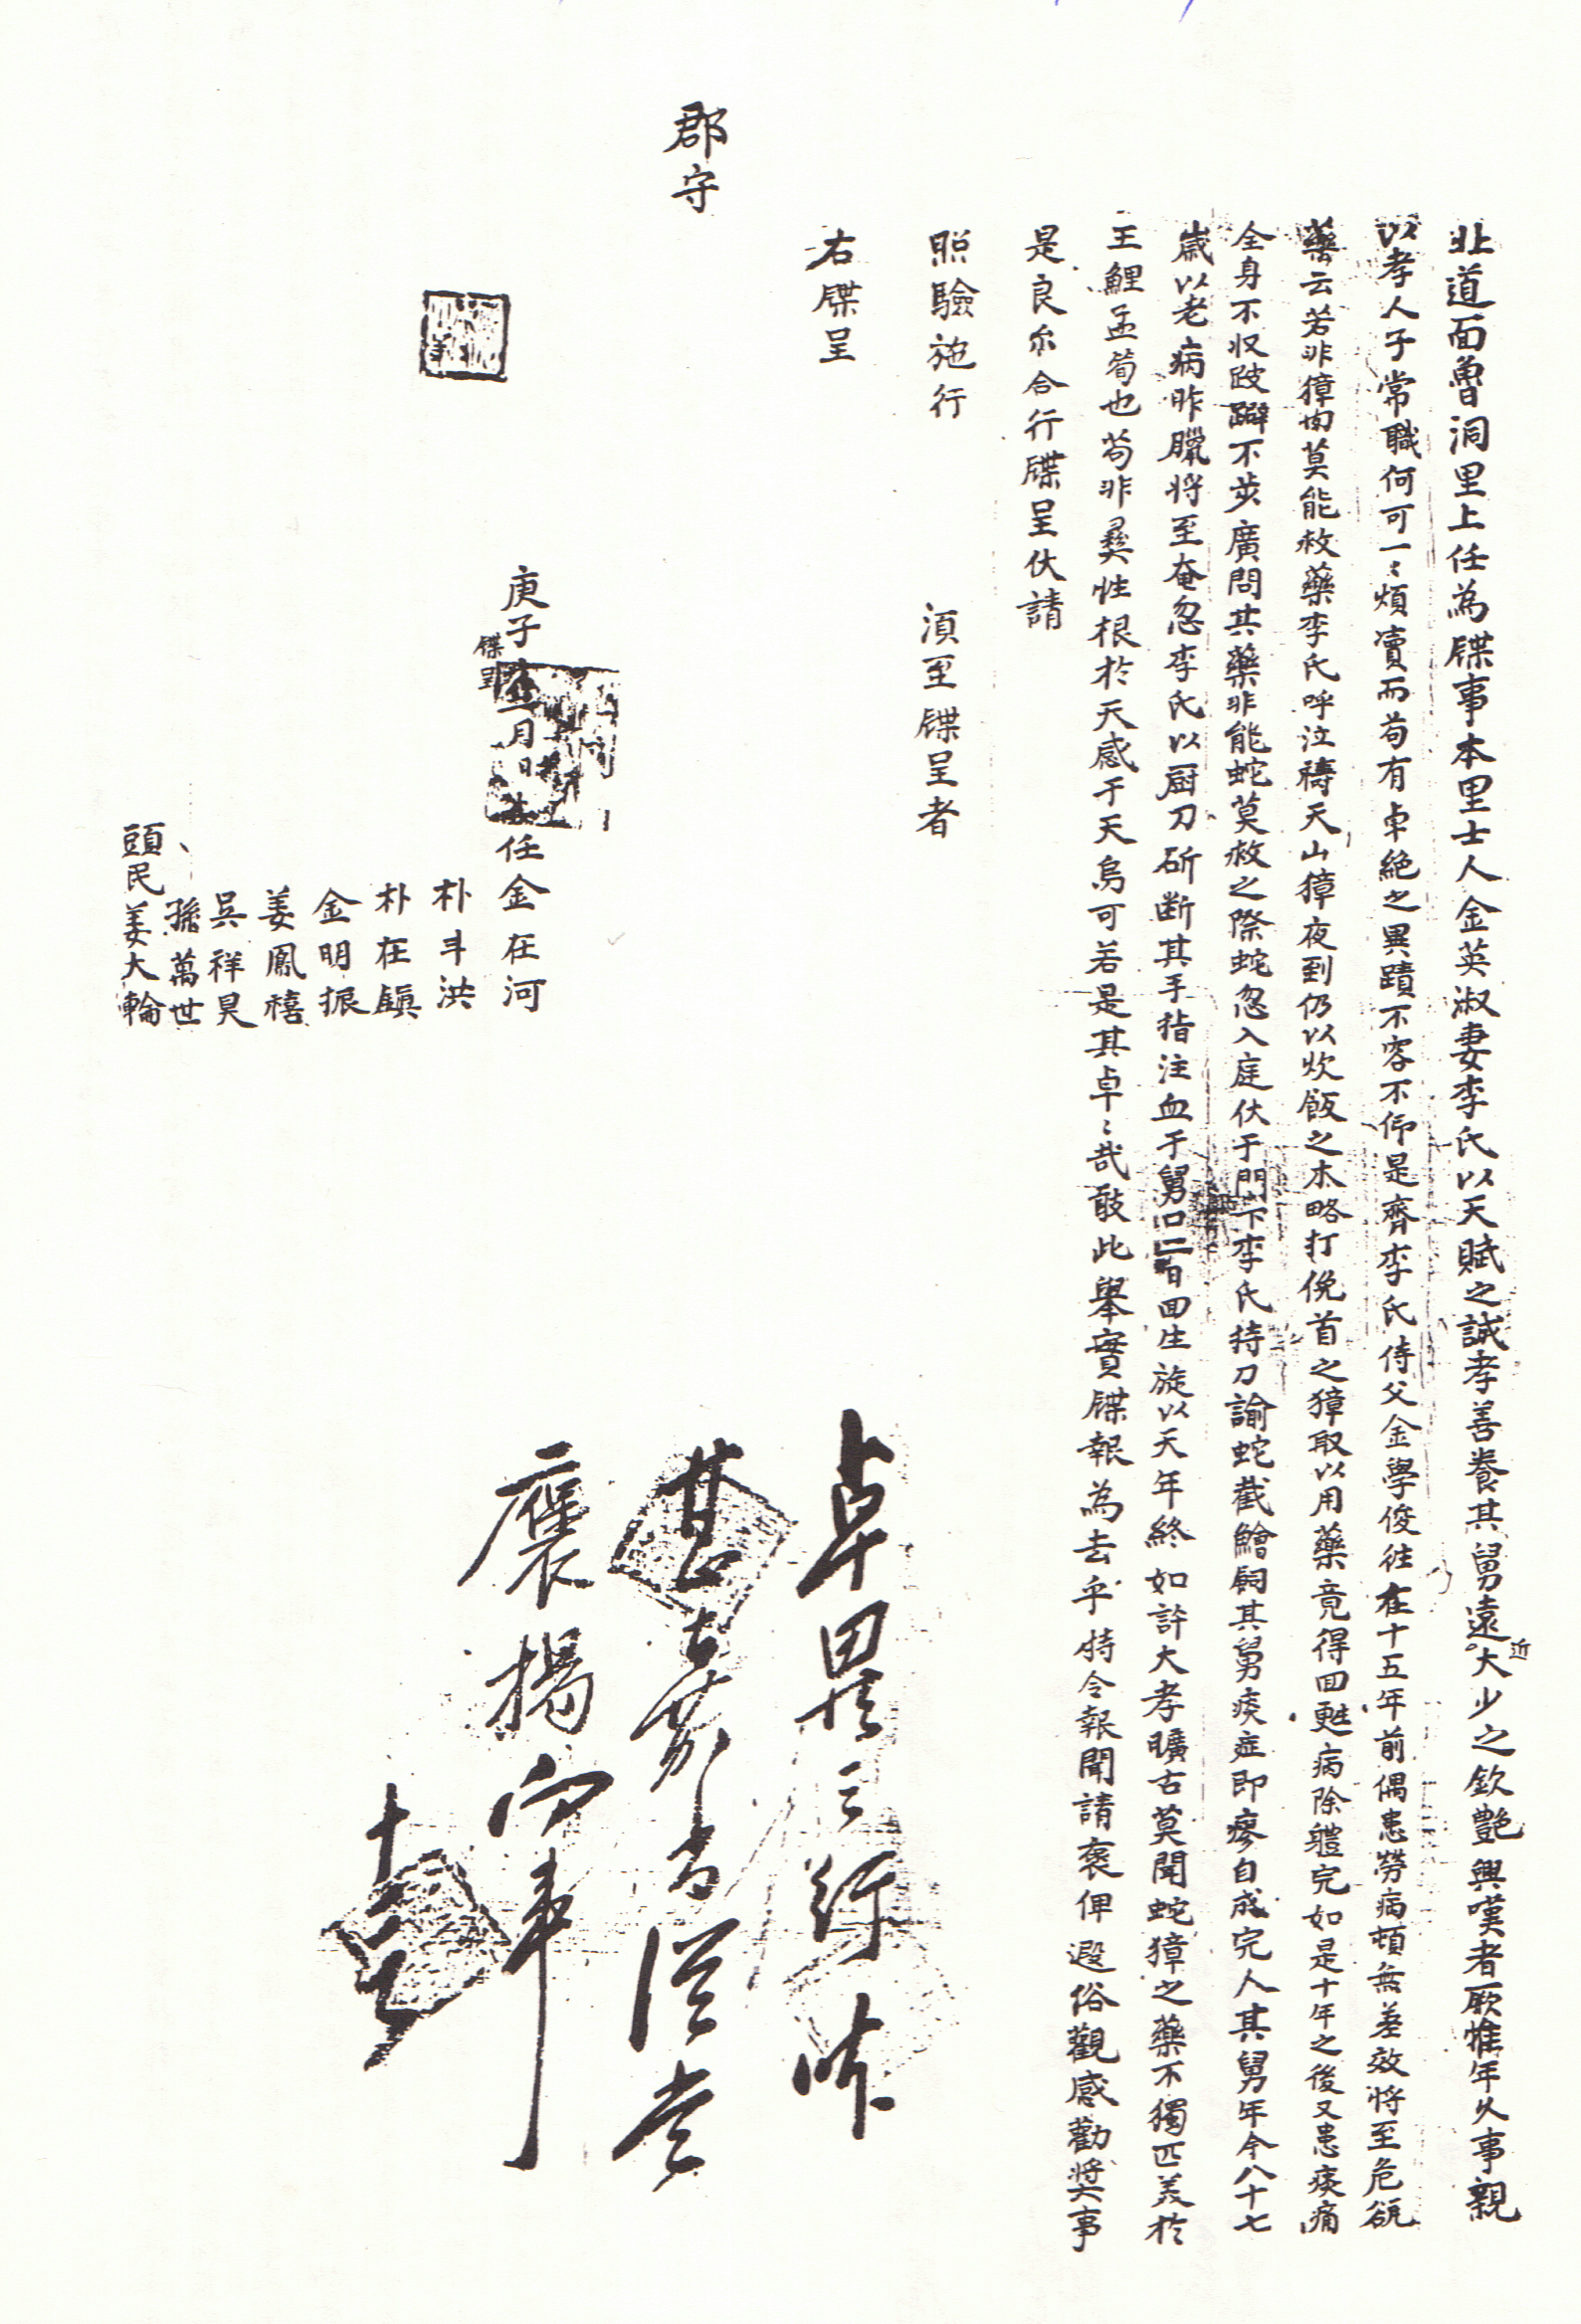 北道面魯洞里上任為牒事本里士人金英淑妻李氏以天賦之誠孝善養其舅遠近大少之欽艶興嘆者厥惟年久事親
以孝人子常職何可一〻煩瀆而苟有卓絶之異蹟不容不仰是齊李氏侍父金學俊徃在十五年前偶患勞病頓無差效將至危
藥云若非獐肉莫能救藥李氏呼泣禱天山獐夜到仍以炊飯之木略打俛首之獐取以用藥竟得回甦病除軆完如是十年之後又患痰痛
全身不収跛躃不步廣問其藥非能蛇莫救之際蛇忽入庭伏于門下李氏持刀諭蛇截鱠飼其舅痰症即瘳自成完人其舅年今八十七
歲以老病昨臘將至奄忽李氏以厨刀斫断其手指注血于舅口二日回生旋以天年終如許大孝曠古莫聞蛇獐之藥不獨匹美於
王鯉孟荀也苟非彛性根於天感于天烏可若是其卓〻哉敢此舉實牒報為去乎特令報聞請褒俾遐俗觀感勸奬事
是良尔合行牒呈伏請
照驗施行 湏至牒呈者
右牒呈
郡守
庚子 月 日 任金在河
牒呈
朴斗洪
朴在鎭
金明振
姜鳳禧
吳祥昊
孫萬世
頭民姜大輪
卓異之行
甚 嘉尚 從 當
褒揚向事
十